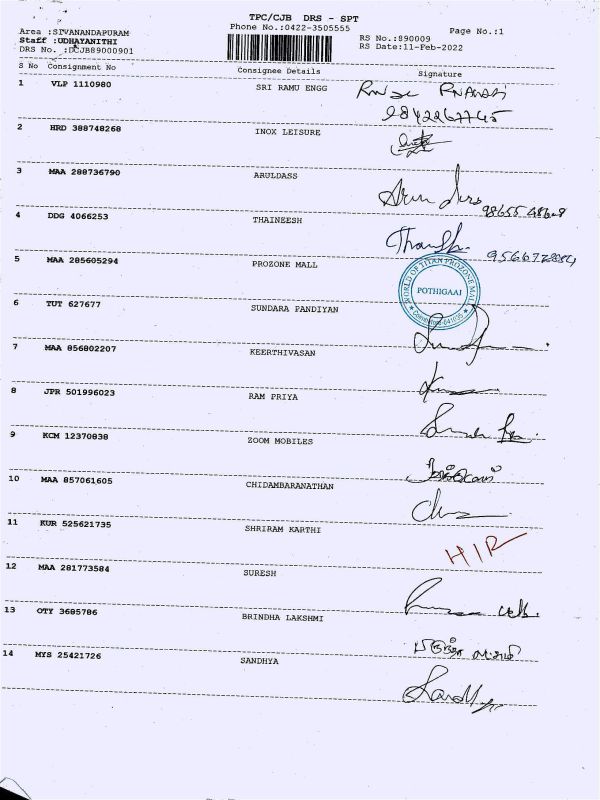 TPC/CJB DRS - SPT
Area :SIVANANDAPURAM Phone No.:0422-3505555 Page No.:1
Staff :UDHAYANITHI RS No.:890009
DRS No. :DCJB89000901 RS Date:11-Feb-2022
S No Consignment No Consignee Details Signature
1 VLP 1110980 SRI RAMU ENGG
2 HRD 388748268 INOX LEISURE
3 MAA 288736790 ARULDASS
4 DDG 4066253 THAINEESH
5 MAA 285605294 PROZONE MALL
WORLD OF TITAN PROZONE MALL
POTHIGAAI
6 TUT 627677 SUNDARA PANDIYAN
7 MAA 856802207 KEERTHIVASAN
8 JPR 501996023 RAM PRIYA
9 KCM 12370838 ZOOM MOBILES
10 MAA 857061605 CHIDAMBARANATHAN
11 KUR 525621735 SHRIRAM KARTHI
12 MAA 281773584 SURESH
13 OTY 3685786 BRINDHA LAKSHMI
14 MYS 25421726 SANDHYA